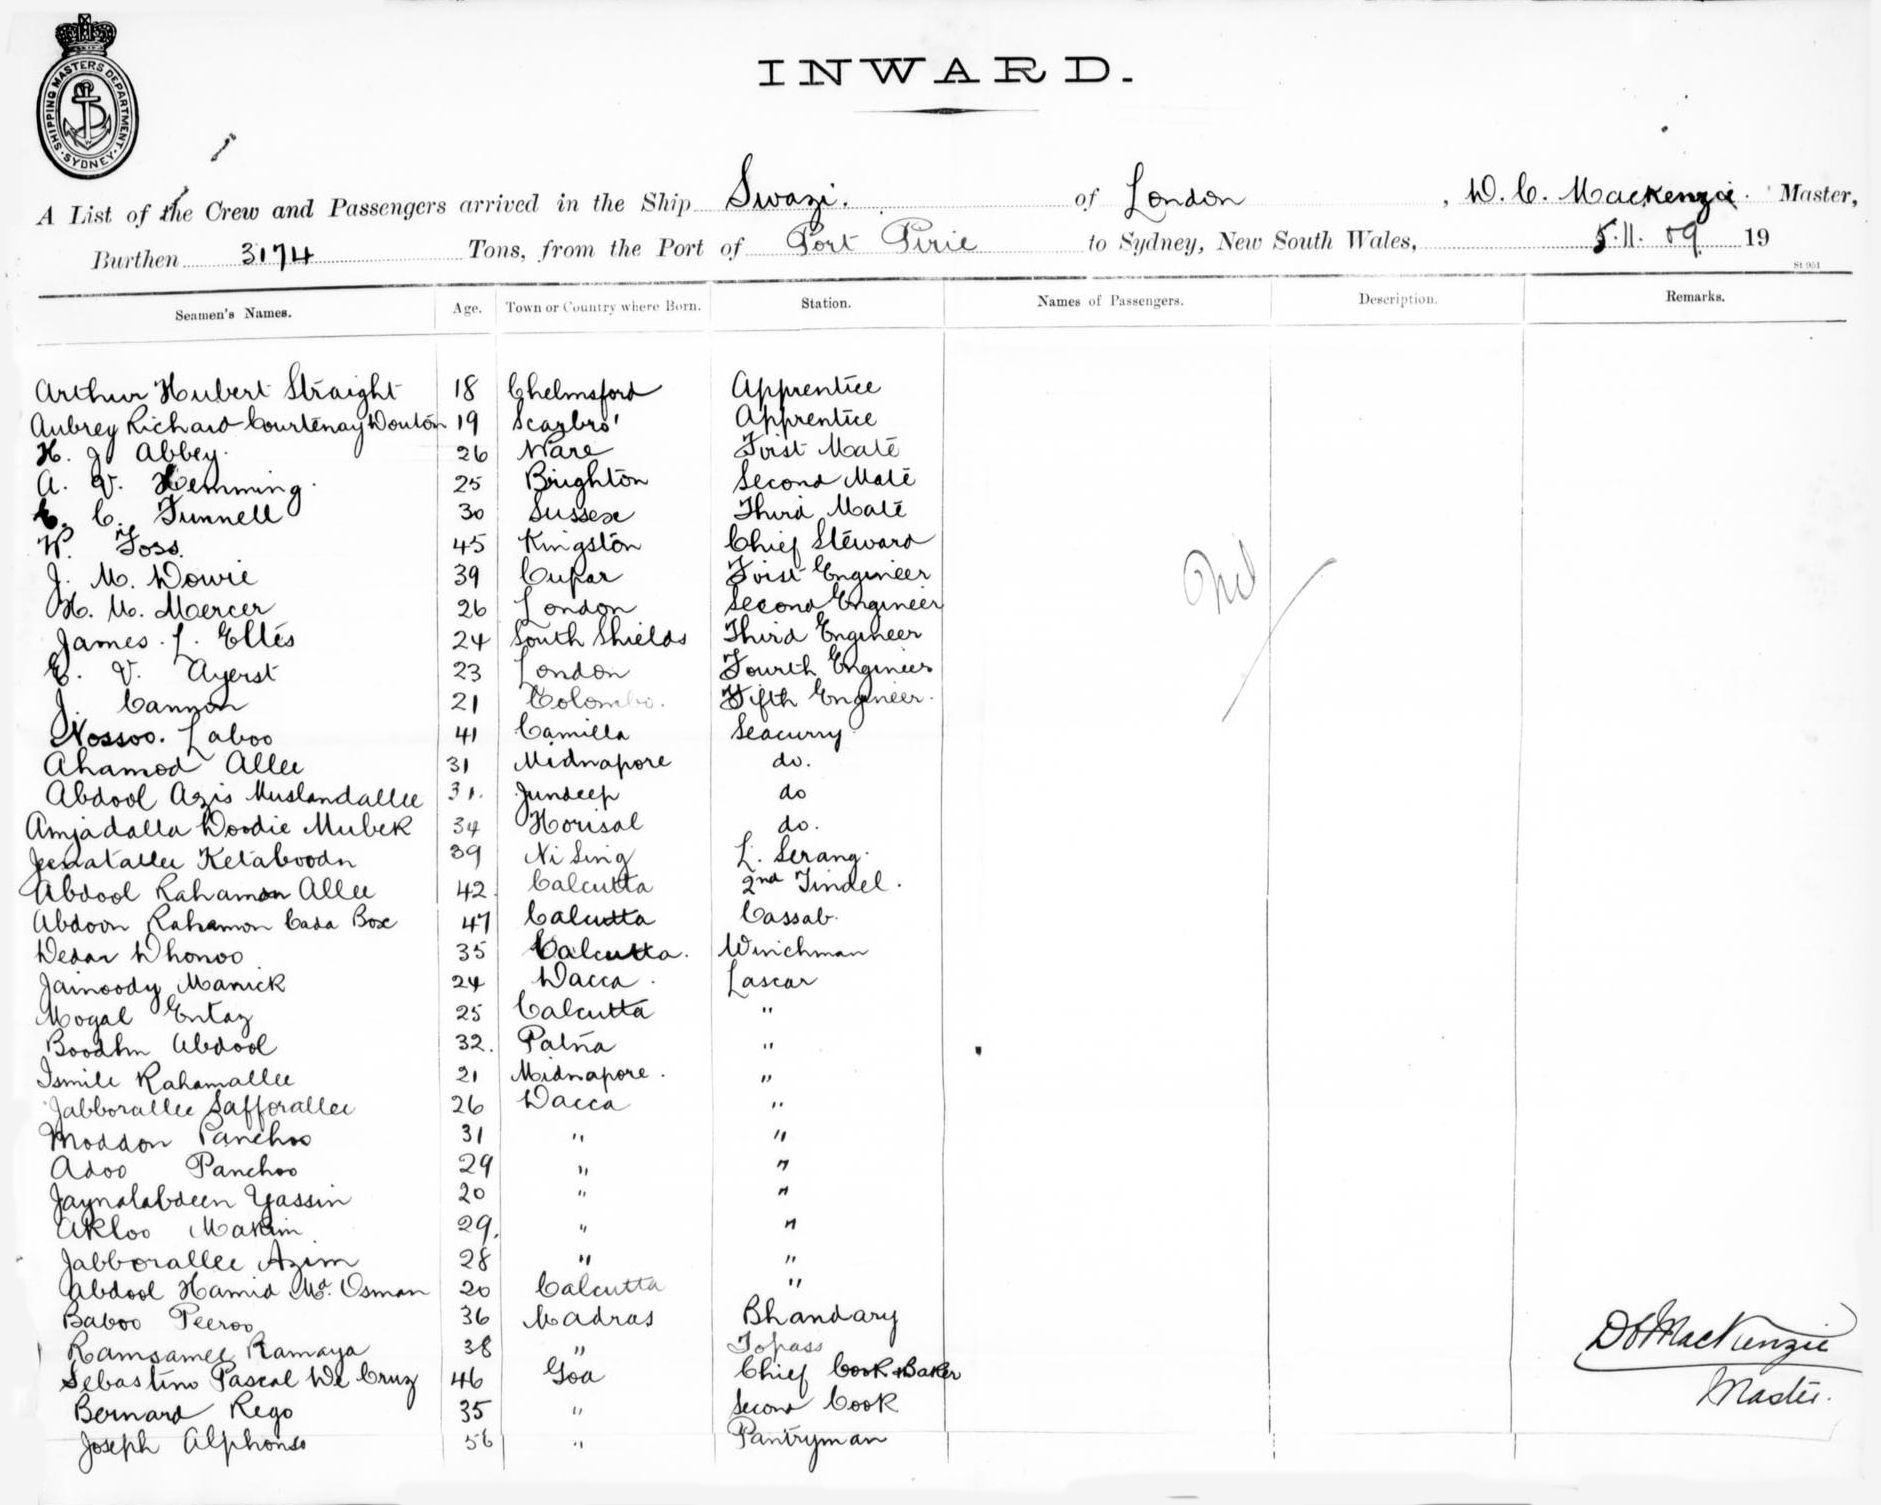 SHIPPING MASTERS DEPARTMENT
SYDNEY
INWARD.
A List of the Crew and Passengers arrived in the Ship Swazi. of London, D. C. Mackenzie. Master,
Burthen 3174 Tons, from the Port of Port Pirie to Sydney, New South Wales, 5.11.09 19
St 951
Seamen's Names. Age. Town or Country where Born. Station. Names of Passengers. Description. Remarks.
Arthur Hubert Straight 18 Chelmsford Apprentice
Aubrey Richard Courtenay Douton 19 Scarbro' Apprentice
H. J. Abbey. 26 Ware First Mate
A. V. Hemming. 25 Brighton Second Mate
C. Funnell 30 Sussex Third Mate
W. Foss. 45 Kingston Chief Steward
J. M. Dowie 39 Cupar First Engineer
H. M. Mercer 26 London Second Engineer
James. L. Elles 24 South Shields Third Engineer
E. V. Ayerst 23 London Fourth Engineer
J. Cannon 21 Colombo. Fifth Engineer.
Nossoo. Laboo 41 Camilla Seacunny
Ahamod Allee 31 Midnapore do.
Abdool Azis Muslandallee 31. Jundeep do
Amjadalla Doodie Mubek 34 Horisal do.
Jeenatallee Ketaboodn 39 Ni Sing L. Serang.
Abdool Rahamon Allee 42. Calcutta 2nd Tindel.
Abdoon Rahamon Cada Box 47 Calcutta Cassab.
Dedar Dhonoo 35 Calcutta. Winchman
Jainoody Manick 24 Dacca. Lascar
Mogal Entaz 25 Calcutta "
Boodhn Abdool 32. Patna "
Ismile Rahamallee 21 Midnapore. "
Jabborallee Safforallee 26 Dacca "
Moddon Panchoo 31 " "
Adoo Panchoo 29 " "
Jaynalabdeen Yassin 20 " "
Akloo Makim 29. " "
Jabborallee Azim 28 " "
Abdool Hamid Md. Osman 20 Calcutta "
Baboo Peeroo 36 Madras Bhandary
Ramsamee Ramaya 38 " Topass
Sebastino Pascal De Cruz 46 Goa Chief Cook & Baker
Bernard Rego 35 " Second Cook
Joseph Alphonso 56 " Pantryman
Nil
DC MacKenzie
Master.